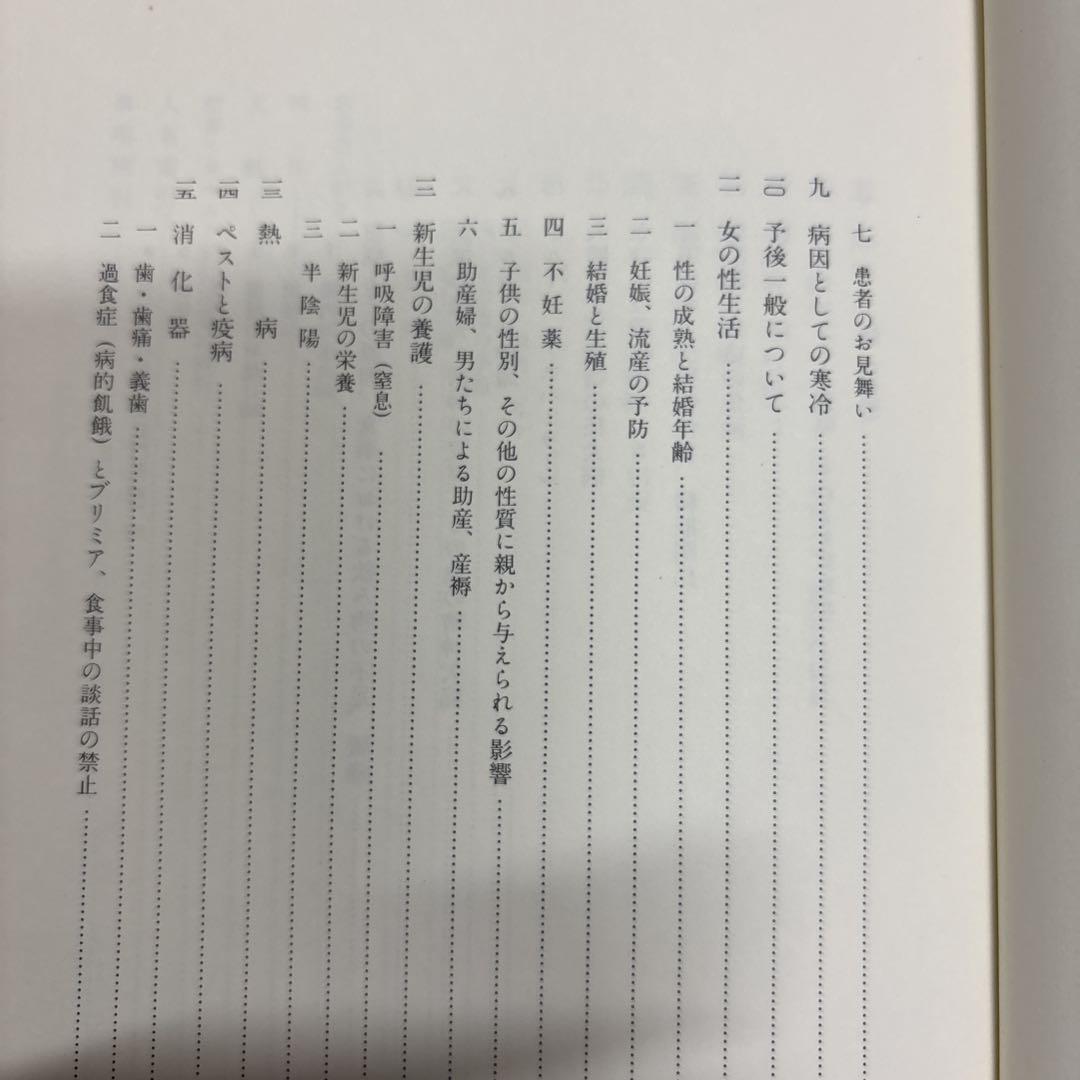 七 患者のお見舞い
九 病因としての寒冷
一〇 予後一般について
一一 女の性生活
一 性の成熟と結婚年齢
二 妊娠、流産の予防
三 結婚と生殖
四 不妊薬
五 子供の性別、その他の性質に親から与えられる影響
六 助産婦、男たちによる助産、産褥
一二 新生児の養護
一 呼吸障害（窒息）
二 新生児の栄養
三 半陰陽
一三 熱病
一四 ペストと疫病
一五 消化器
一 歯・歯痛・義歯
二 過食症（病的飢餓）とブリミア、食事中の談話の禁止